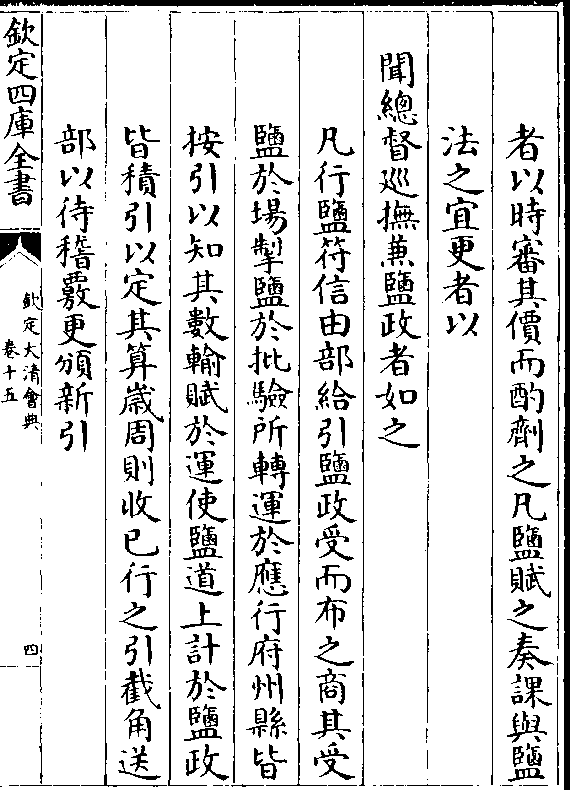 者以時審其價而酌劑之凡鹽賦之奏課與鹽
法之宜更者以
聞總督巡撫兼鹽政者如之
凡行鹽符信由部給引鹽政受而布之商其受
鹽於場掣鹽於批驗所轉運於應行府州縣皆
按引以知其數輸賦於運使鹽道上計於鹽政
皆積引以定其算歲周則收已行之引截角送
部以待稽覈更頒新引
欽定四庫全書
欽定大清會典
卷十五
四